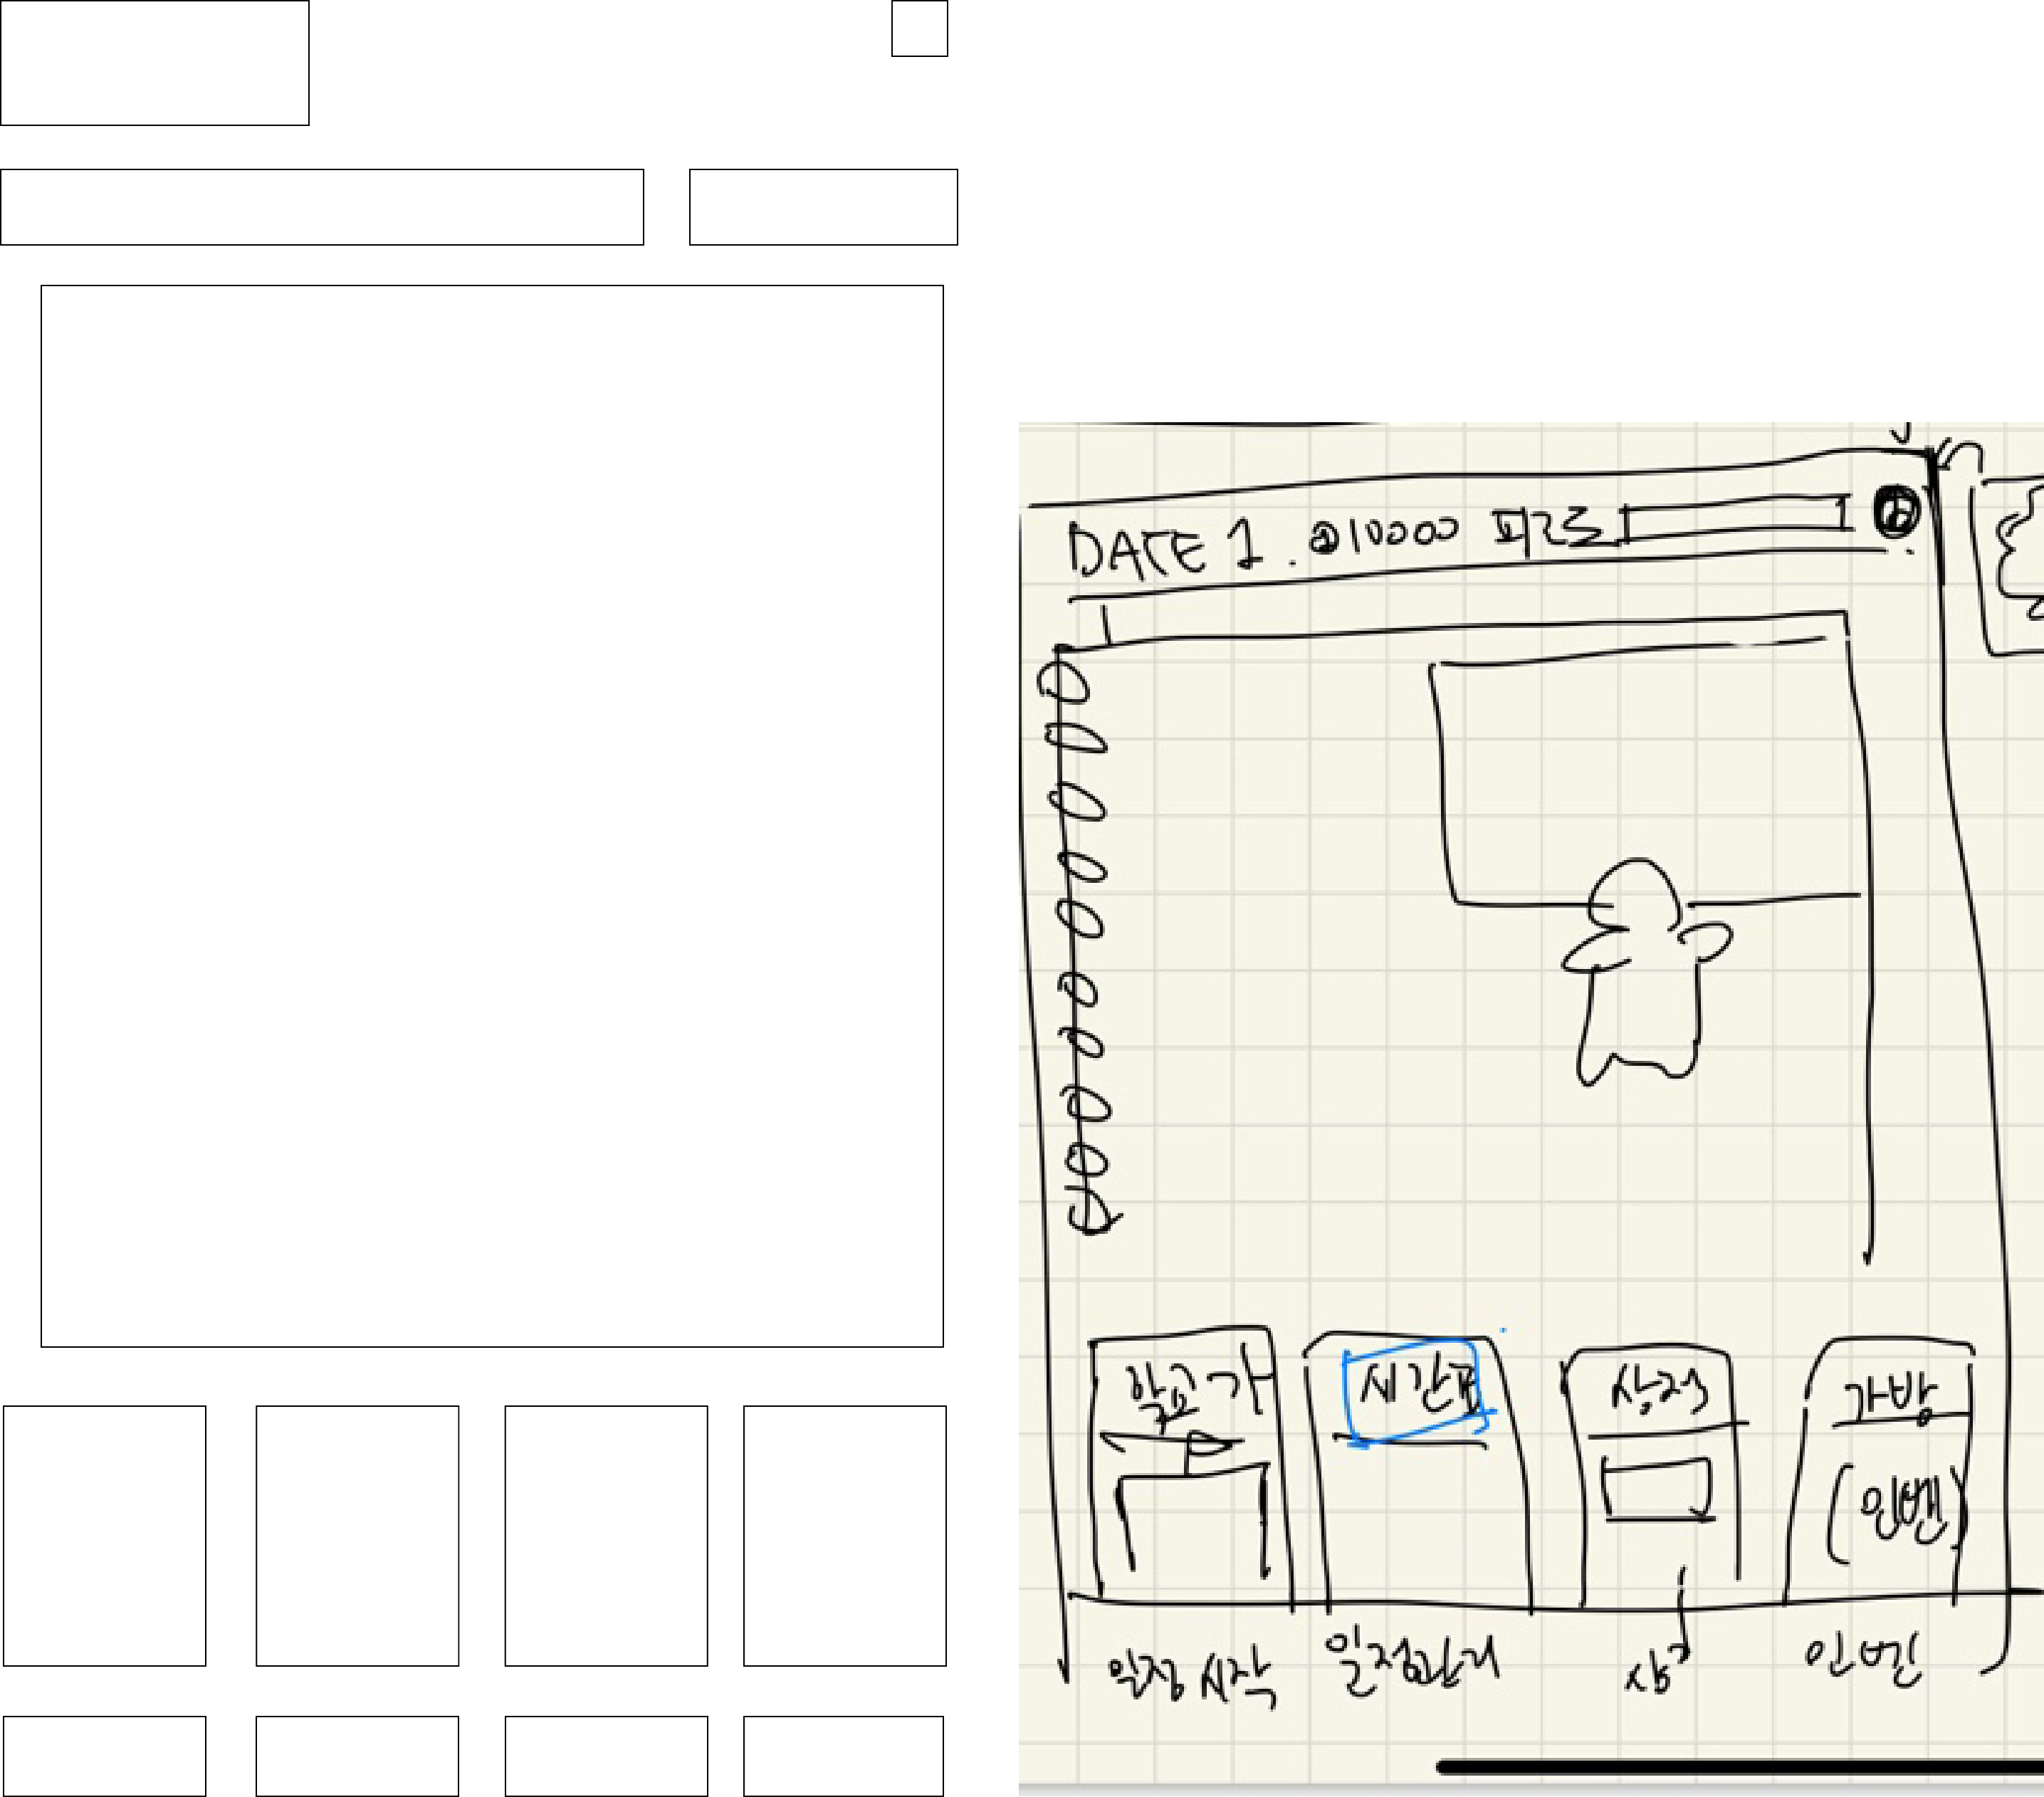 DATE 1. @10000 피로도
학교가
시간표
상점
가방
(인벤)
일정 시작
일정관리
상점
인벤